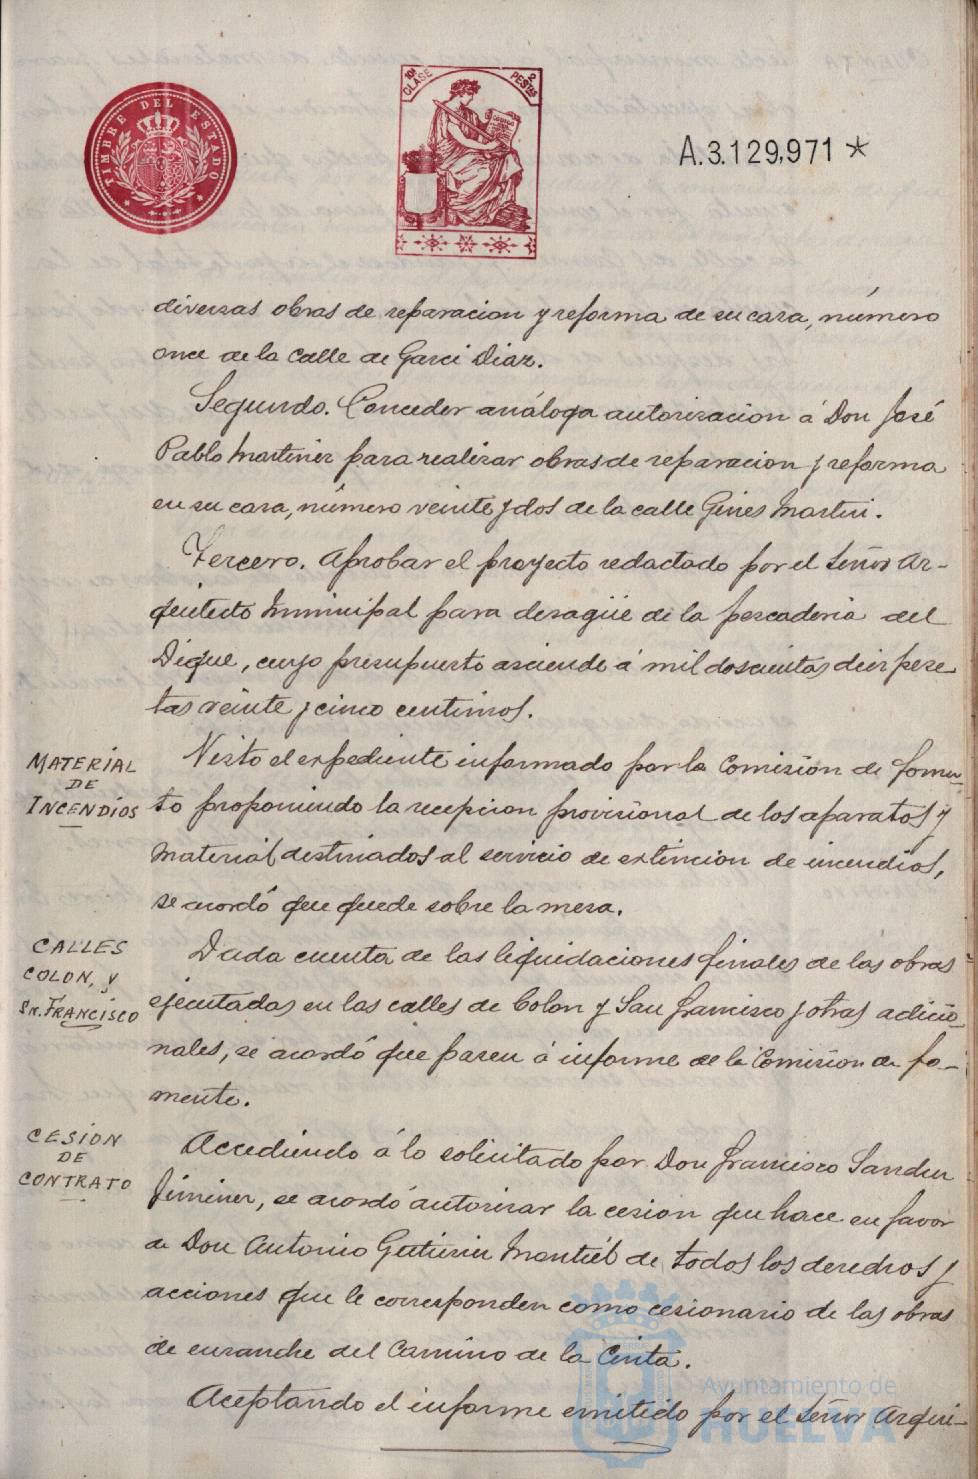 TIMBRE DEL ESTADO
10ª CLASE 2 PESETAS
A.3.129,971 *
diversas obras de reparacion y reforma de su casa, número
once de la calle de Garci Diaz.
Segundo. Conceder análoga autorizacion á Don José
Pablo Martinez para realizar obras de reparacion y reforma
en su casa, número veinte y dos de la calle Gines Martin.
Tercero. Aprobar el proyecto redactado por el Señor Ar-
quitecto Municipal para desagüe de la pescaderia del
Dique, cuyo presupuesto asciende á mil doscientas diez pese-
tas veinte y cinco centimos.
MATERIAL
DE
INCENDIOS
Visto el expediente informado por la Comision de Fomen-
to proponiendo la recepcion provisional de los aparatos y
material destinados al servicio de extincion de incendios,
se acordó que quede sobre la mesa.
CALLES
COLON, y
Sn. FRANCISCO
Dada cuenta de las liquidaciones finales de las obras
ejecutadas en las calles de Colon y San Francisco y otras adicio-
nales, se acordó que pasen á informe de la Comision de Fo-
mento.
CESION
DE
CONTRATO
Accediendo á lo solicitado por Don Francisco Sanchez
Jimenez, se acordó autorizar la cesion que hace en favor
de Don Antonio Gutierrez Montiel de todos los derechos y
acciones que le corresponden como cesionario de las obras
de ensanche del Camino de la Cinta.
Aceptando el informe emitido por el Señor Arqui-
Ayuntamiento de
HUELVA